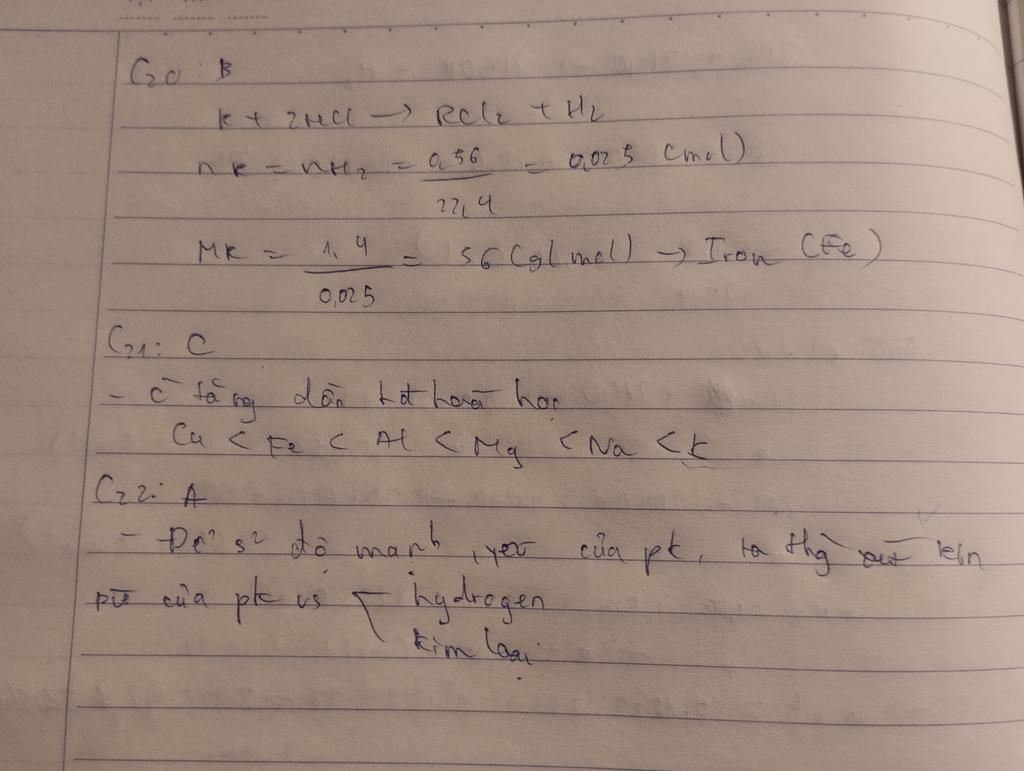 C20: B
R + 2HCl → RCl2 + H2
nR = nH2 = 0,56 / 22,4 = 0,025 (mol)
MR = 1,4 / 0,025 = 56 (g/mol) → Iron (Fe)
C21: C
- c tăng dần hđ hoá học
Cu < Fe < Al < Mg < Na < K
C22: A
- Để s² độ mạnh, yếu của pk, ta thg
pư của pk vs hydrogen
kim loại